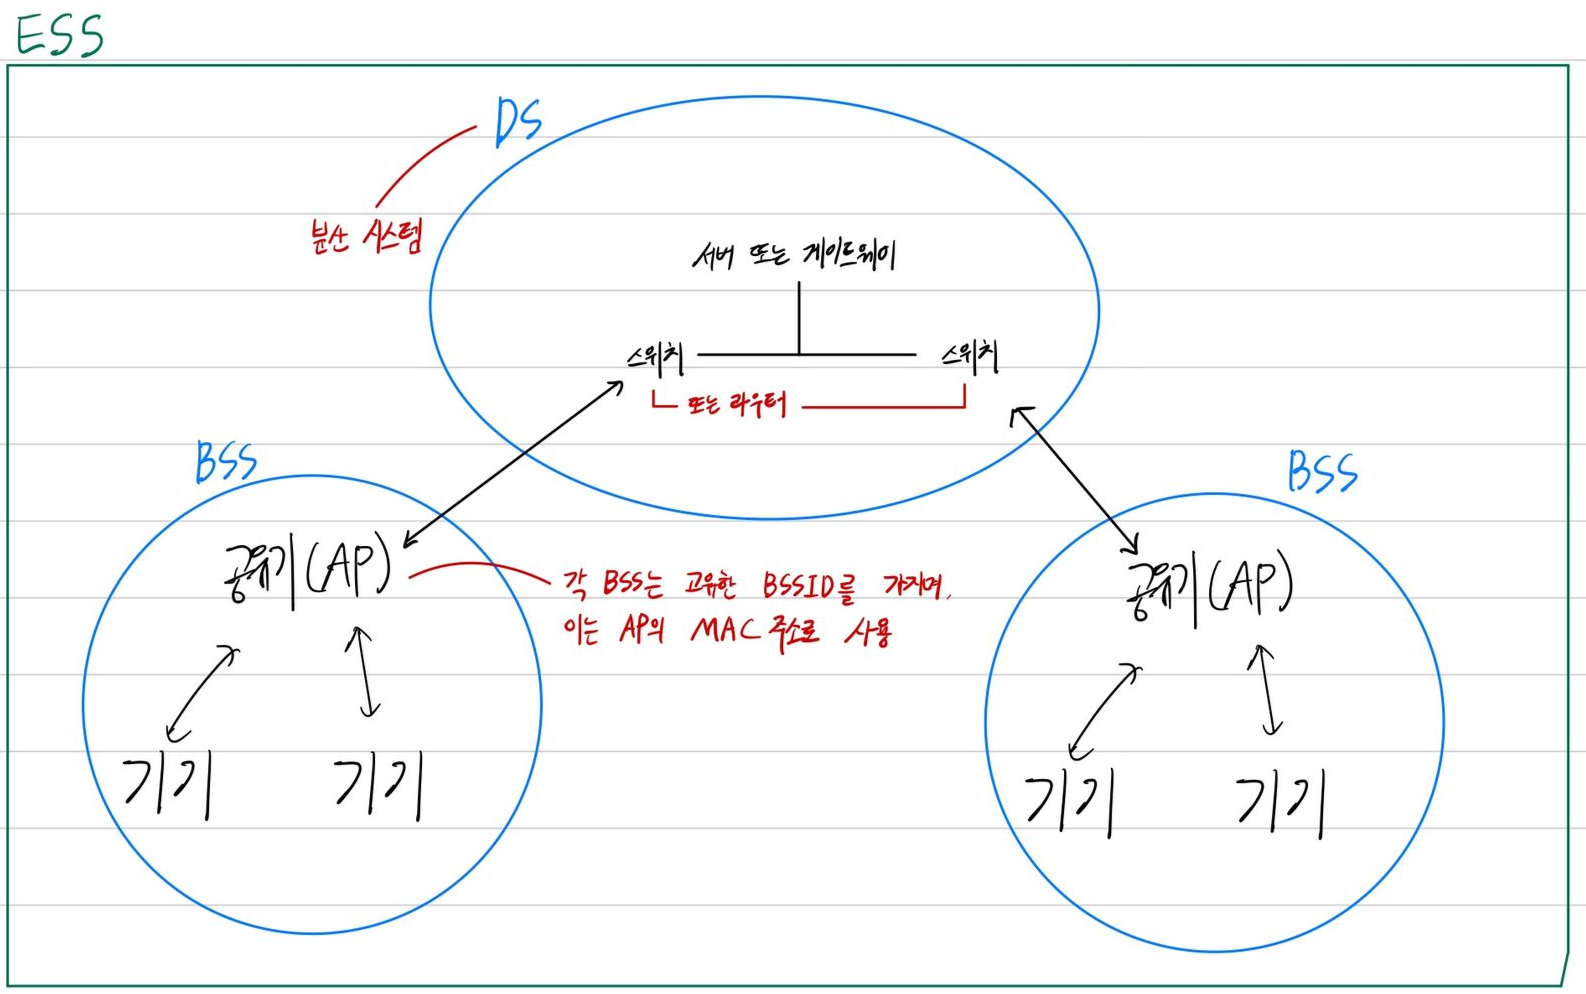 ESS
DS
분산 시스템
서버 또는 게이트웨이
스위치
스위치
또는 라우터
BSS
BSS
공유기(AP)
각 BSS는 고유한 BSSID를 가지며,
이는 AP의 MAC 주소로 사용
공유기(AP)
기기
기기
기기
기기